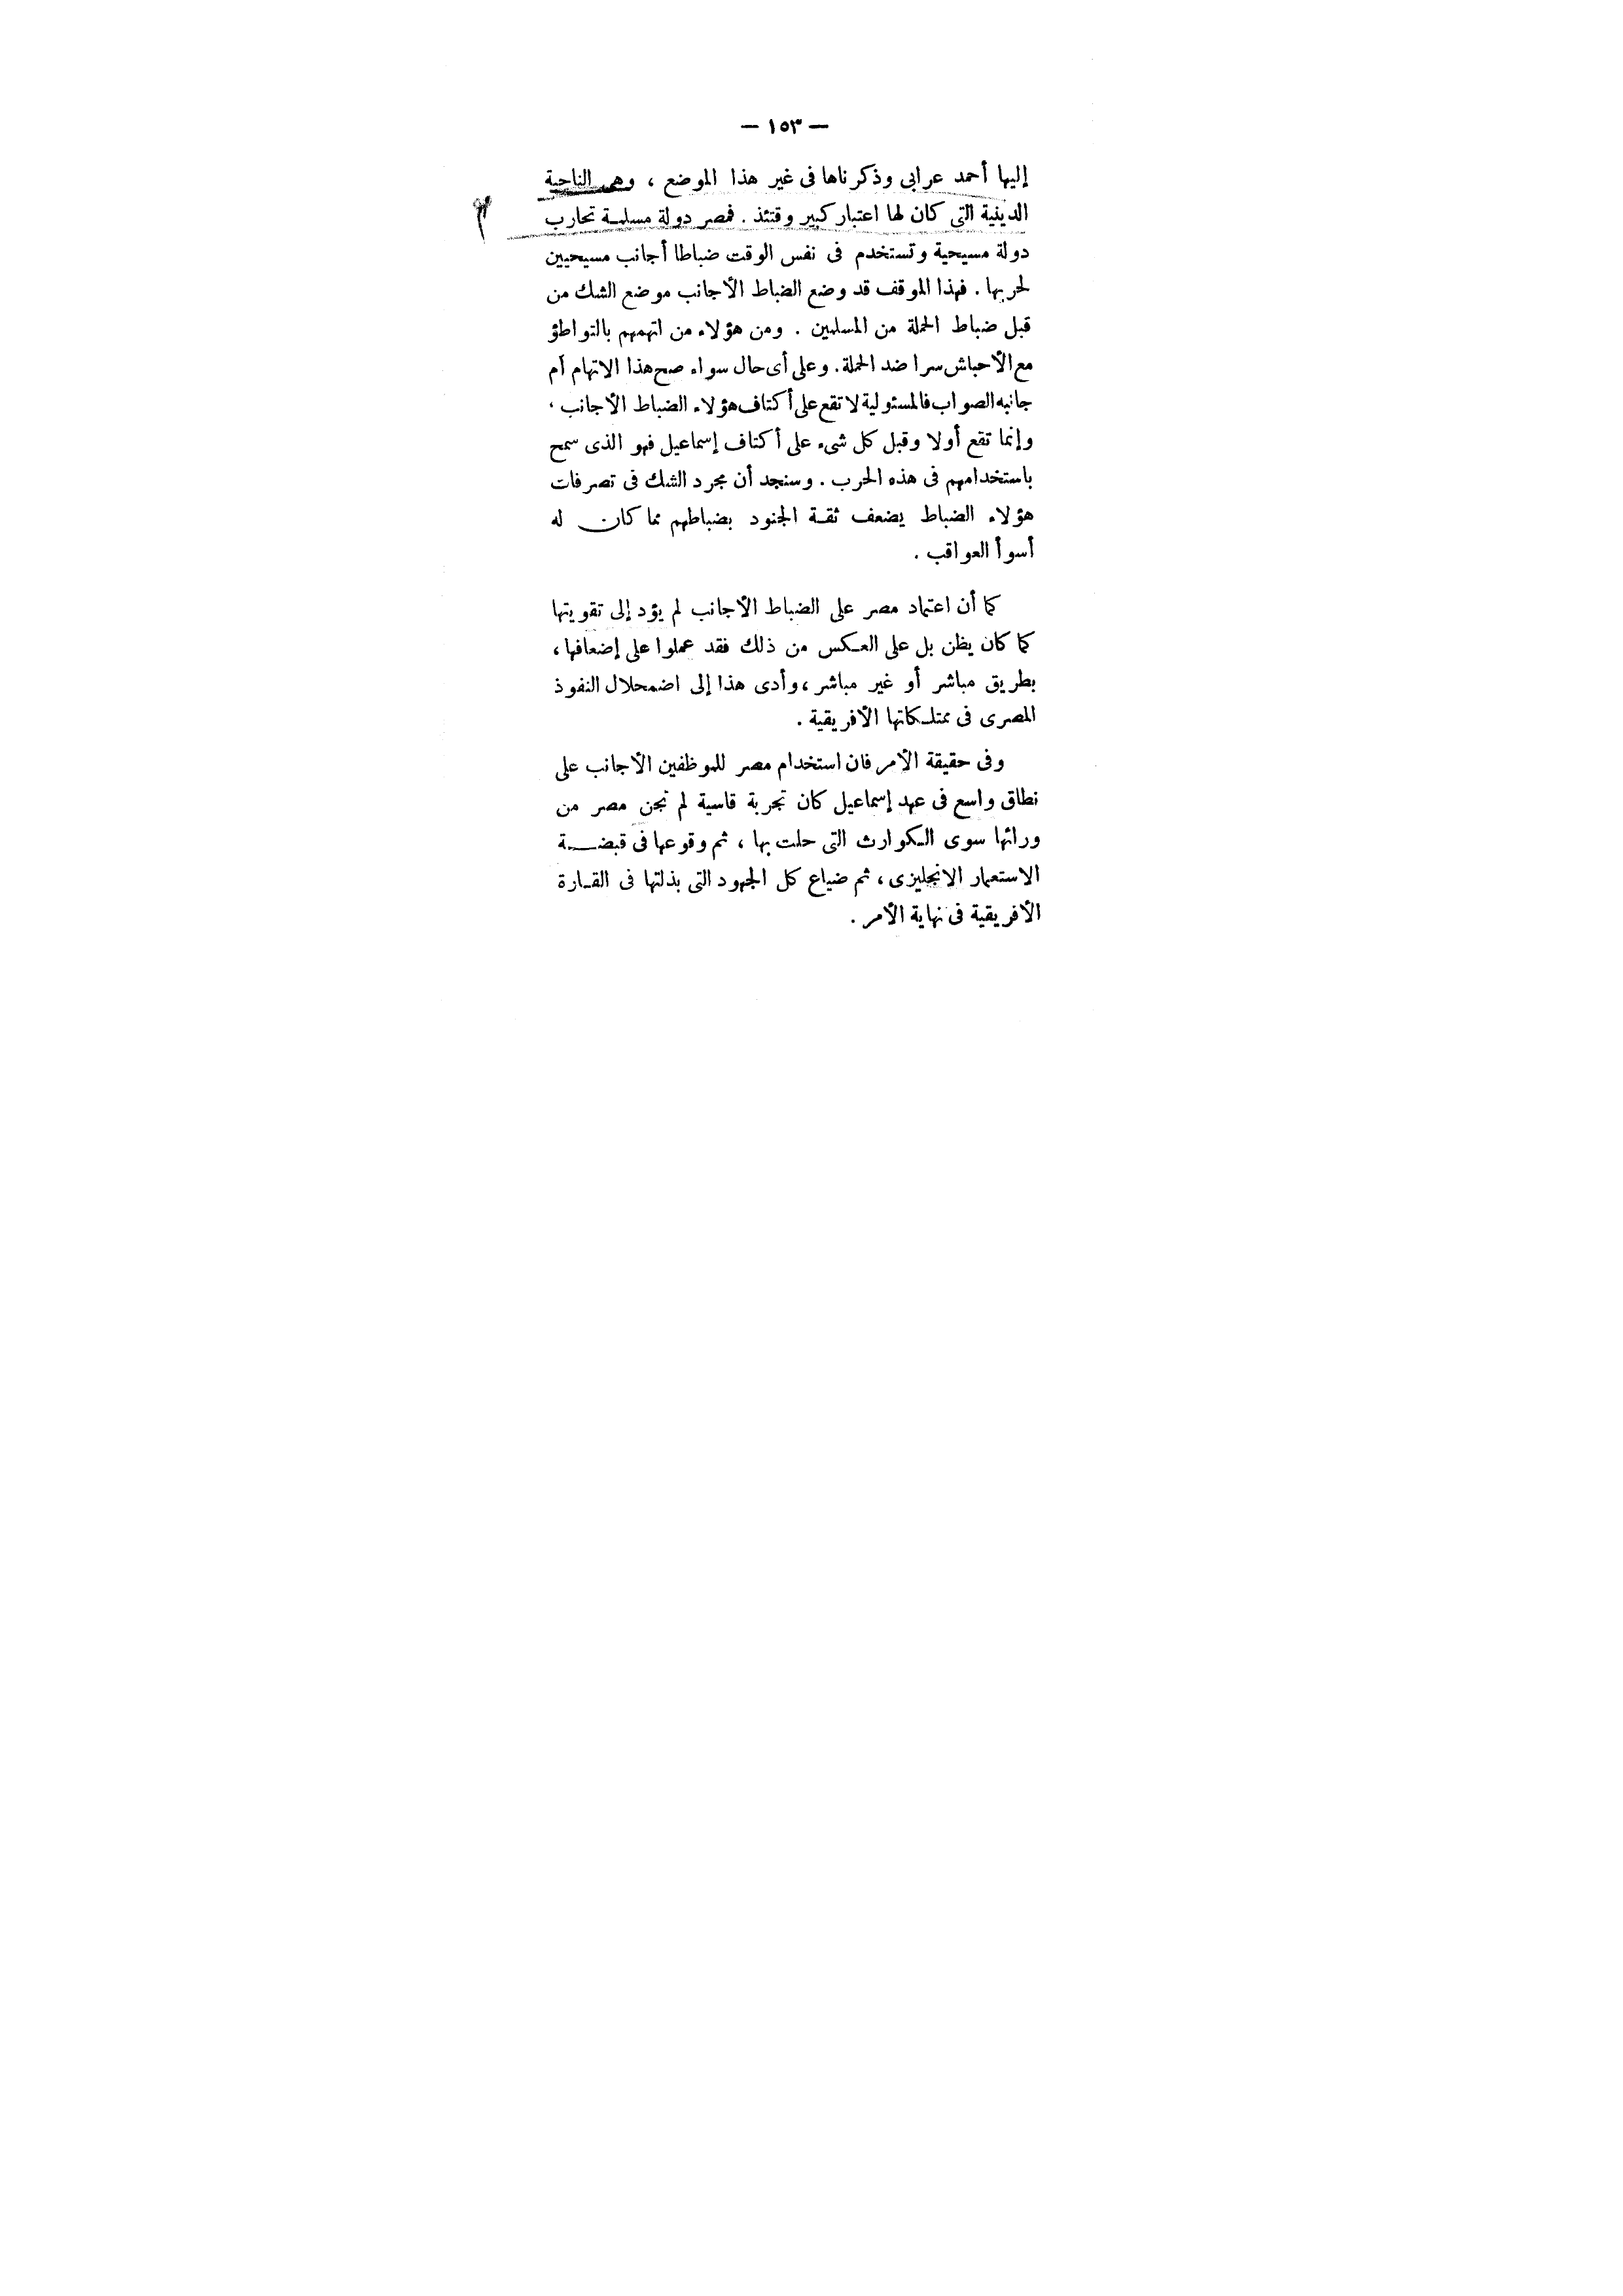 — ١٥٣ —
إليها أحمد عرابى وذكرناها فى غير هذا الموضع ، وهى الناحية
الدينية التى كان لها اعتبار كبير وقتئذ . فمصر دولة مسلمة تحارب
دولة مسيحية وتستخدم فى نفس الوقت ضباطا أجانب مسيحيين
لحربها . فهذا الموقف قد وضع الضباط الأجانب موضع الشك من
قبل ضباط الحملة من المسلمين . ومن هؤلاء من اتهمهم بالتواطؤ
مع الأحباش سرا ضد الحملة. وعلى أى حال سواء صح هذا الاتهام أم
جانبه الصواب فالمسئولية لا تقع على أكتاف هؤلاء الضباط الأجانب ،
وإنما تقع أولا وقبل كل شىء على أكتاف إسماعيل فهو الذى سمح
باستخدامهم فى هذه الحرب . وسنجد أن مجرد الشك فى تصرفات
هؤلاء الضباط يضعف ثقة الجنود بضباطهم مما كان له
أسوأ العواقب .
كما أن اعتماد مصر على الضباط الأجانب لم يؤد إلى تقويتها
كما كان يظن بل على العكس من ذلك فقد عملوا على إضعافها ،
بطريق مباشر أو غير مباشر ، وأدى هذا إلى اضمحلال النفوذ
المصرى فى ممتلكاتها الأفريقية .
وفى حقيقة الأمر فان استخدام مصر للموظفين الأجانب على
نطاق واسع فى عهد إسماعيل كان تجربة قاسية لم تجن مصر من
ورائها سوى الكوارث التى حلت بها ، ثم وقوعها فى قبضة
الاستعمار الانجليزى ، ثم ضياع كل الجهود التى بذلتها فى القارة
الأفريقية فى نهاية الأمر .